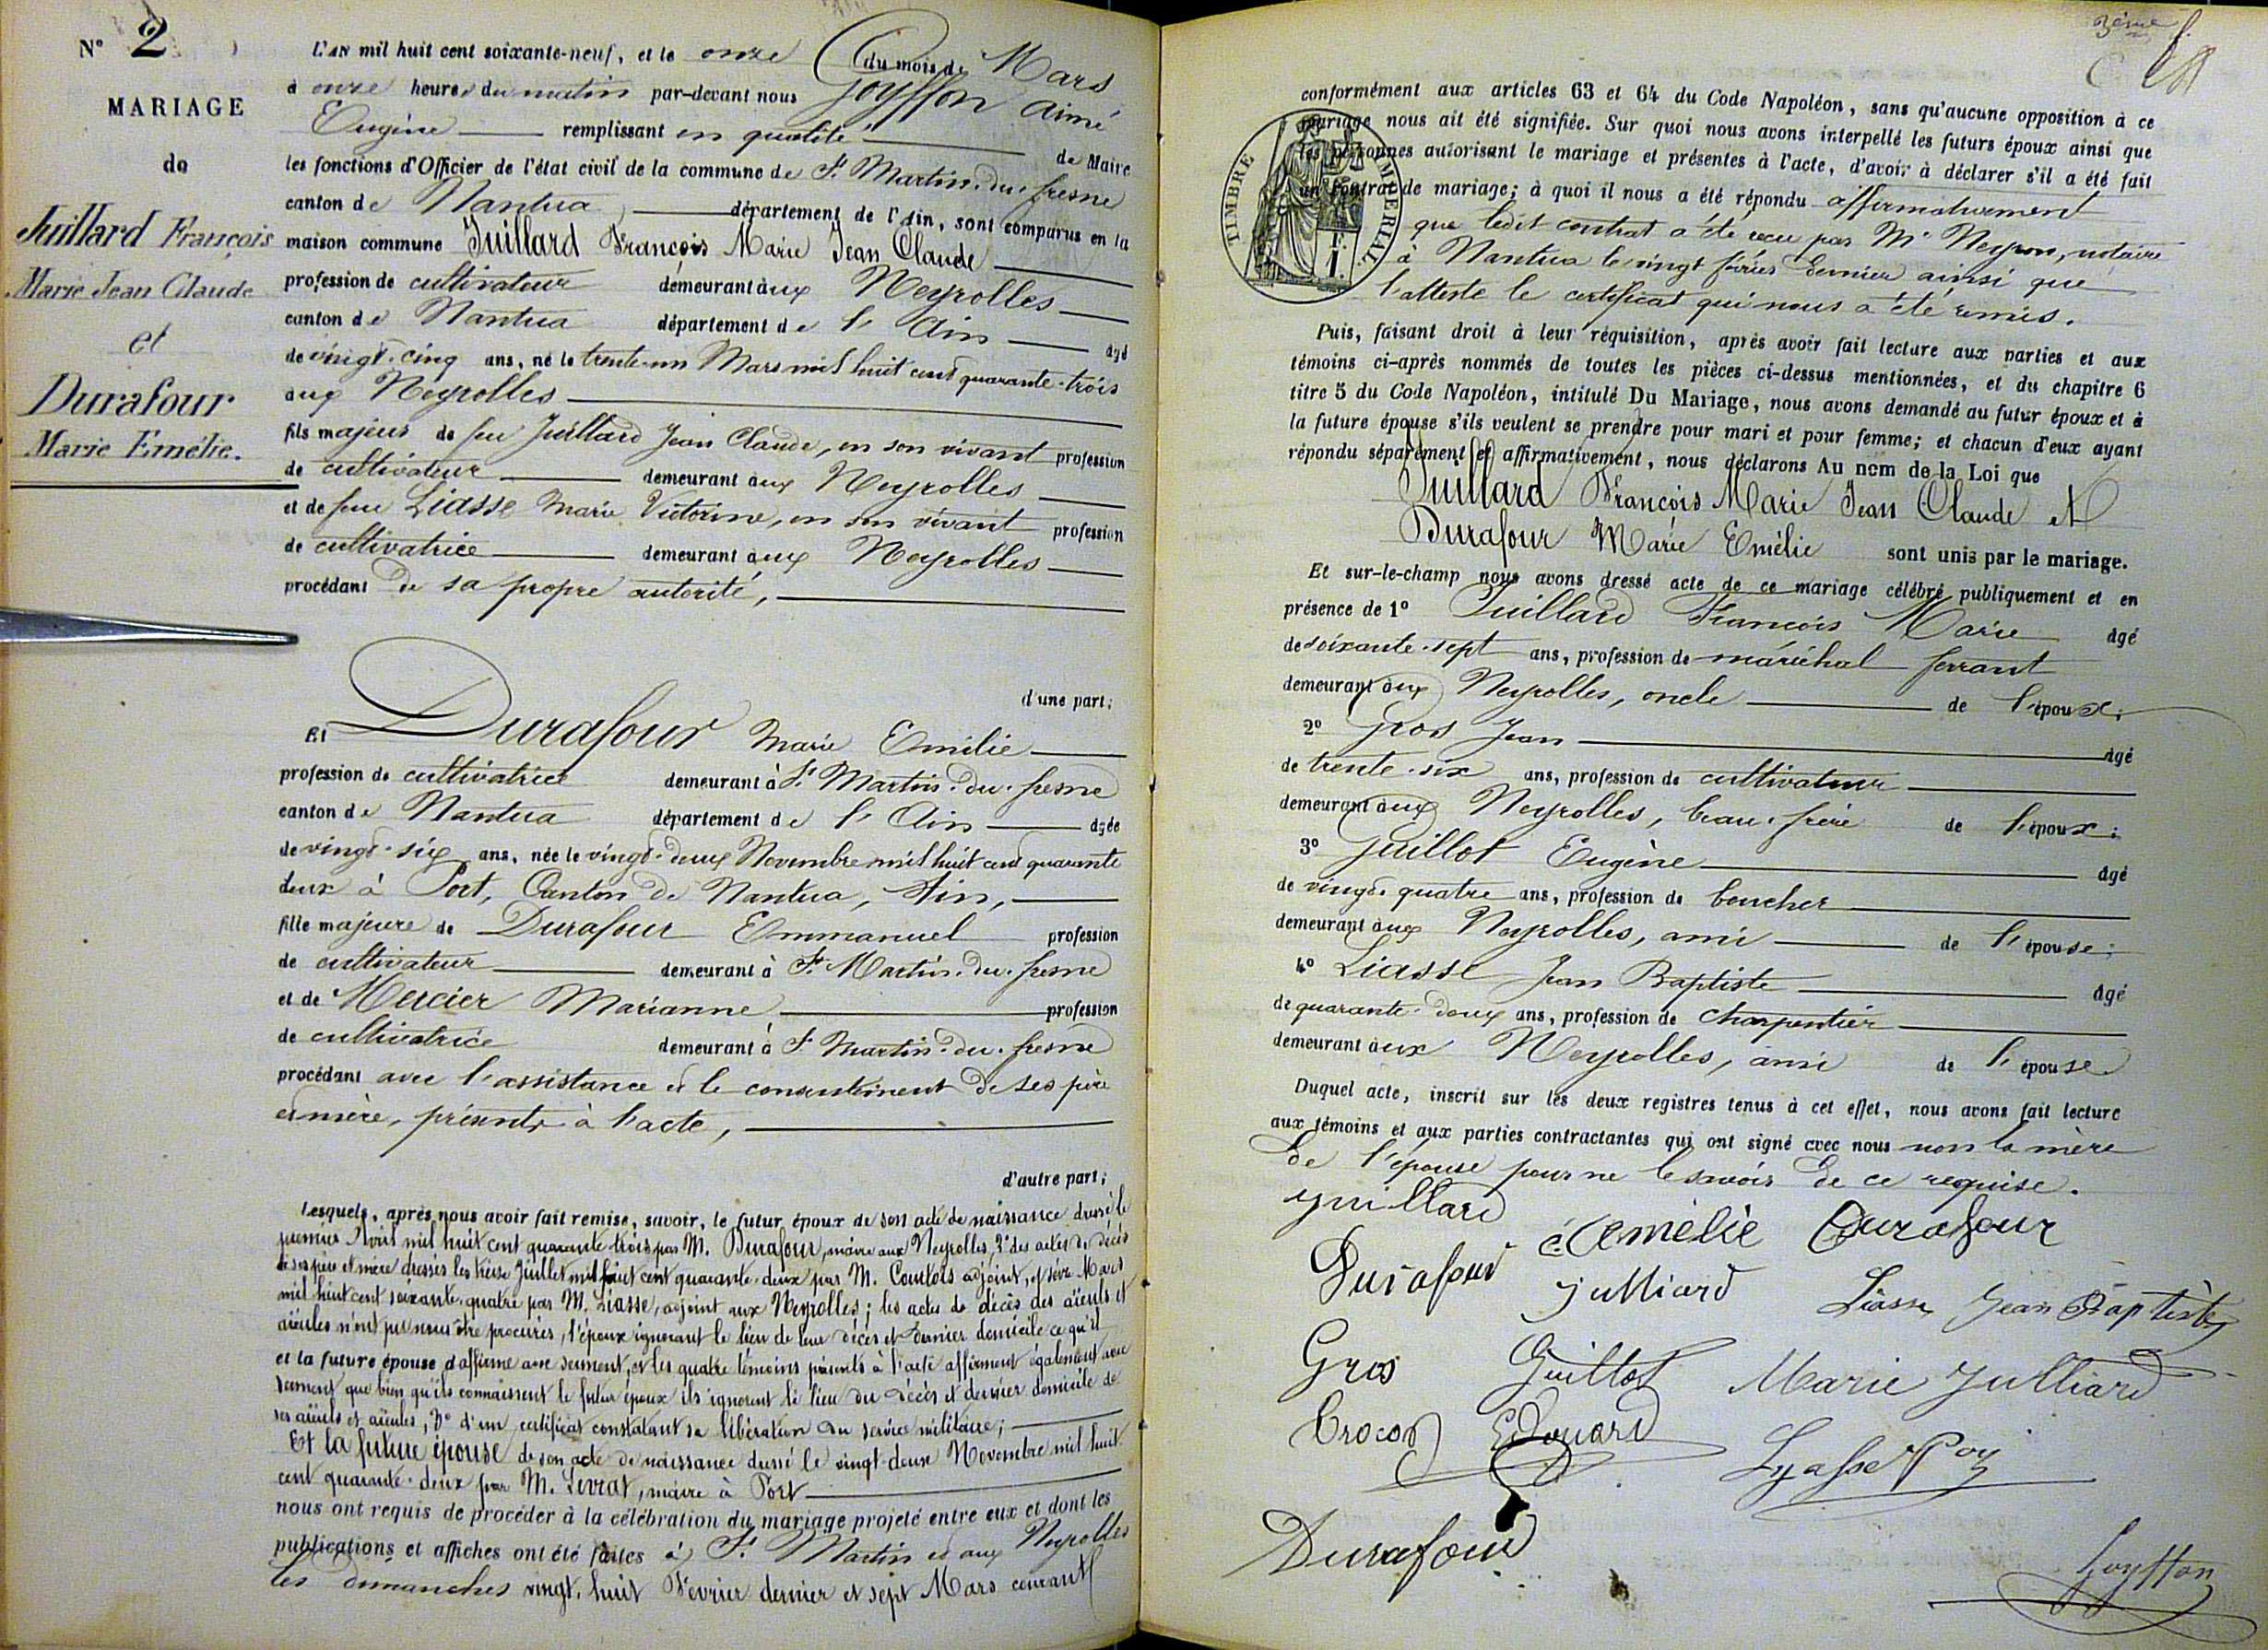 N° 2
MARIAGE
de
Juillard François
Marie Jean Claude
et
Durafour
Marie Emélie.
L'AN mil huit cent soixante-neuf, et le onze du mois de Mars
à onze heures du matin par-devant nous Goyffon Aimé
Eugène remplissant en qualité de Maire
les fonctions d'Officier de l'état civil de la commune de St Martin-du-fresne
canton de Nantua, département de l'Ain, sont comparus en la
maison commune Juillard François Marie Jean Claude
profession de cultivateur demeurant aux Neyrolles
canton de Nantua département de l'Ain âgé
de vingt-cinq ans, né le trente-un Mars mil huit cent quarante-trois
aux Neyrolles
fils majeur de feu Juillard Jean Claude, en son vivant profession
de cultivateur demeurant aux Neyrolles
et de feue Liasse Marie Victorine, en son vivant profession
de cultivatrice demeurant aux Neyrolles
procédant de sa propre autorité,
d'une part;
Et Durafour Marie Emélie
profession de cultivatrice demeurant à St Martin-du-fresne
canton de Nantua département de l'Ain âgée
de vingt-six ans, née le vingt-deux Novembre mil huit cent quarante
deux à Port, Canton de Nantua, Ain,
fille majeure de Durafour Emmanuel profession
de cultivateur demeurant à St Martin-du-fresne
et de Mercier Marianne profession
de cultivatrice demeurant à St Martin-du-fresne
procédant avec l'assistance et le consentement de ses père
et mère, présents à l'acte,
d'autre part;
Lesquels, après nous avoir fait remise, savoir, le futur époux de son acte de naissance dressé le
premier Avril mil huit cent quarante trois par M. Durafour, maire aux Neyrolles, 2° des actes de décès
de ses père et mère dressés les treize Juillet mil huit cent quarante-deux par M. Courtois adjoint, et seize Mars
mil huit cent soixante-quatre par M. Liasse, adjoint aux Neyrolles; les actes de décès des aïeuls et
aïeules n'ont pu nous être procurés, l'époux ignorant le lieu de leur décès et dernier domicile ce qu'il
et la future épouse d'affirme avec serment, et les quatre témoins présents à l'acte affirment également avec
serment que bien qu'ils connaissent le futur époux ils ignorent le lieu du décès et dernier domicile de
ses aïeuls et aïeules; 3° d'un certificat constatant sa libération du service militaire;
Et la future épouse de son acte de naissance dressé le vingt-deux Novembre mil huit
cent quarante-deux par M. Levrat, maire à Port
nous ont requis de procéder à la célébration du mariage projeté entre eux et dont les
publications et affiches ont été faites à St Martin et aux Neyrolles
les dimanches vingt-huit Février dernier et sept Mars courant
3ème f.
conformément aux articles 63 et 64 du Code Napoléon, sans qu'aucune opposition à ce
mariage nous ait été signifiée. Sur quoi nous avons interpellé les futurs époux ainsi que
les personnes autorisant le mariage et présentes à l'acte, d'avoir à déclarer s'il a été fait
un contrat de mariage; à quoi il nous a été répondu affirmativement
TIMBRE IMPERIAL
que ledit contrat a été reçu par Me Neyron, notaire
à Nantua le vingt février dernier ainsi que
l'atteste le certificat qui nous a été remis.
Puis, faisant droit à leur réquisition, après avoir fait lecture aux parties et aux
témoins ci-après nommés de toutes les pièces ci-dessus mentionnées, et du chapitre 6
titre 5 du Code Napoléon, intitulé Du Mariage, nous avons demandé au futur époux et à
la future épouse s'ils veulent se prendre pour mari et pour femme; et chacun d'eux ayant
répondu séparément et affirmativement, nous déclarons Au nom de la Loi que
Juillard François Marie Jean Claude et
Durafour Marie Emélie sont unis par le mariage.
Et sur-le-champ nous avons dressé acte de ce mariage célébré publiquement et en
présence de 1° Juillard François Marie âgé
de soixante-sept ans, profession de maréchal ferrant
demeurant aux Neyrolles, oncle de l'époux;
2° Gros Jean âgé
de trente-six ans, profession de cultivateur
demeurant aux Neyrolles, beau-frère de l'époux;
3° Guillot Eugène âgé
de vingt-quatre ans, profession de boucher
demeurant aux Neyrolles, ami de l'épouse;
4° Liasse Jean Baptiste âgé
de quarante-deux ans, profession de charpentier
demeurant aux Neyrolles, ami de l'épouse
Duquel acte, inscrit sur les deux registres tenus à cet effet, nous avons fait lecture
aux témoins et aux parties contractantes qui ont signé avec nous non la mère
de l'épouse pour ne le savoir de ce requise.
Juillard
Durafour Emélie Durafour
Julliard Liasse Jean Baptiste
Gros Guillot Marie Julliard
Crocos Edouard Lyasse Poy
Durafour
Goyffon